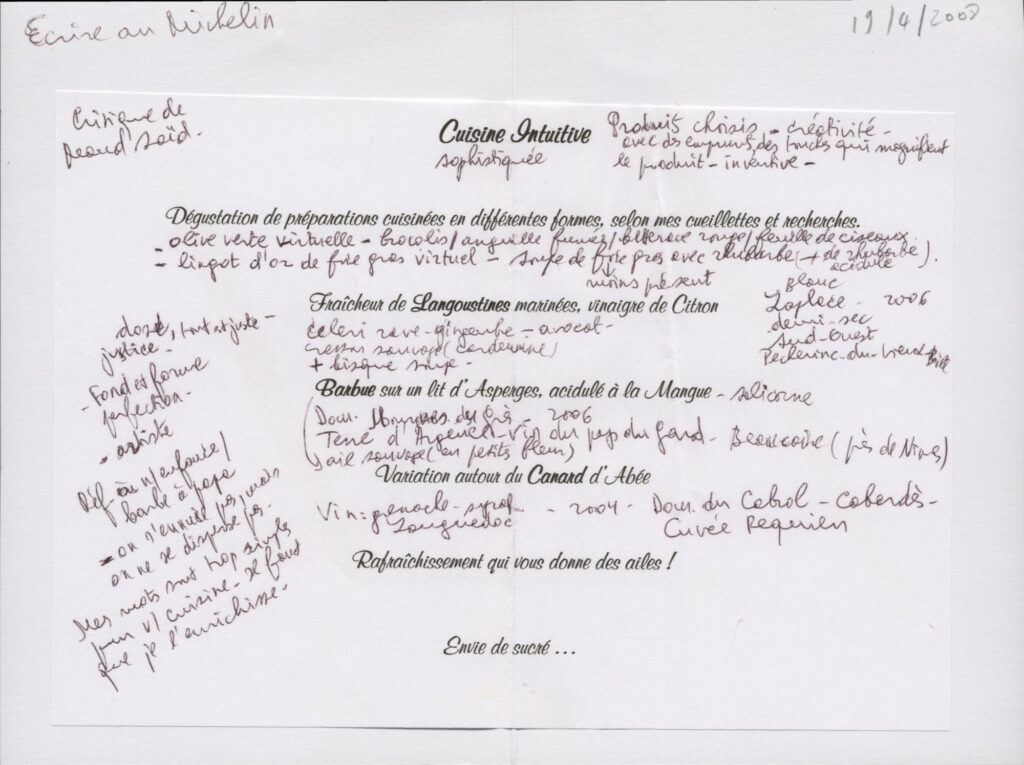 Ecrire au Michelin
19/4/2008
Critique de
Cuisine Intuitive
sophistiquée
Produits choisis - créativité -
avec des emprunts, des trucs qui magnifient
le produit - inventive -
Dégustation de préparations cuisinées en différentes formes, selon mes cueillettes et recherches.
- olive verte virtuelle - brocolis/anguille fumée/betterave rouge/feuille de ciseaux
- lingot d'or de foie gras virtuel - soupe de foie gras avec rhubarbe (+ de rhubarbe).
moins présent
acidulé
Fraîcheur de Langoustines marinées, vinaigre de Citron
celeri rave - gingembre - avocat -
cresson sauvage (cardamine)
+ bisque soupe -
blanc
Laplace - 2006
demi-sec
Sud-Ouest
Pacherenc-du-Vic
Barbue sur un lit d'Asperges, acidulé à la Mangue - salicorne
Dom. du - 2006
Terre d'Argence - Vin du pays du Gard - Beaucaire (près de Nîmes)
ail sauvage (en petits fleurs)
Variation autour du Canard d'Abée
Vin: grenache - syrah - 2004 - Dom. du Cabrol - Cabardès -
Languedoc
Cuvée Requien
Rafraîchissement qui vous donne des ailes !
Envie de sucré ...
dosé, tout est juste -
justice -
- Fond et forme
perfection -
- artiste
Réf. à n/ enfance/
barbe à papa
- on s'ennuie pas, mais
on ne se disperse pas -
Mes mots sont trop simples
pour v/ cuisine - Il faut
que je l'enrichisse -